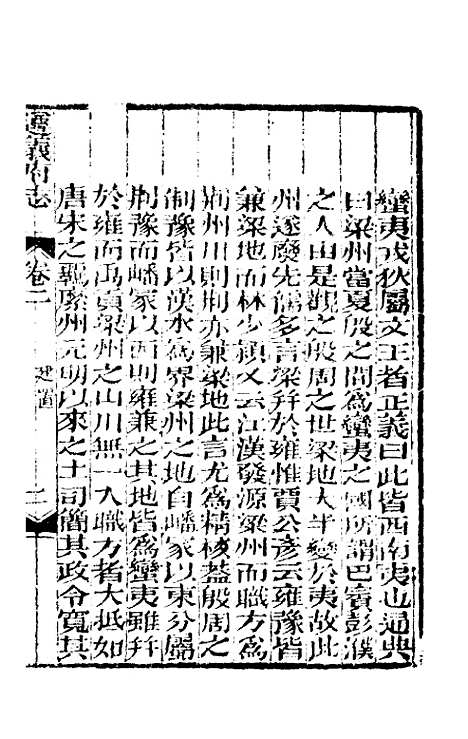 蠻夷戎狄屬文王者正義曰此皆西南夷也通典
曰梁州當夏殷之間為蠻夷之國所謂巴賨彭濮
之人由是觀之殷周之世梁地大半變於夷故此
州遂廢先儒多言梁幷於雍惟賈公彥云雍豫皆
兼梁地而林少穎又云江漢發源梁州而職方為
荊州川則荊亦兼梁地此言尤為精核蓋殷周之
制豫皆以漢水為界梁州之地自嶓冢以東分屬
荊豫而嶓冢以西則雍兼之其地皆為蠻夷雖幷
於雍而禹貢梁州之山川無一入職方者大抵如
唐宋之羈縻州元明以來之土司簡其政令寬其
遵義府志 卷二 建置 二